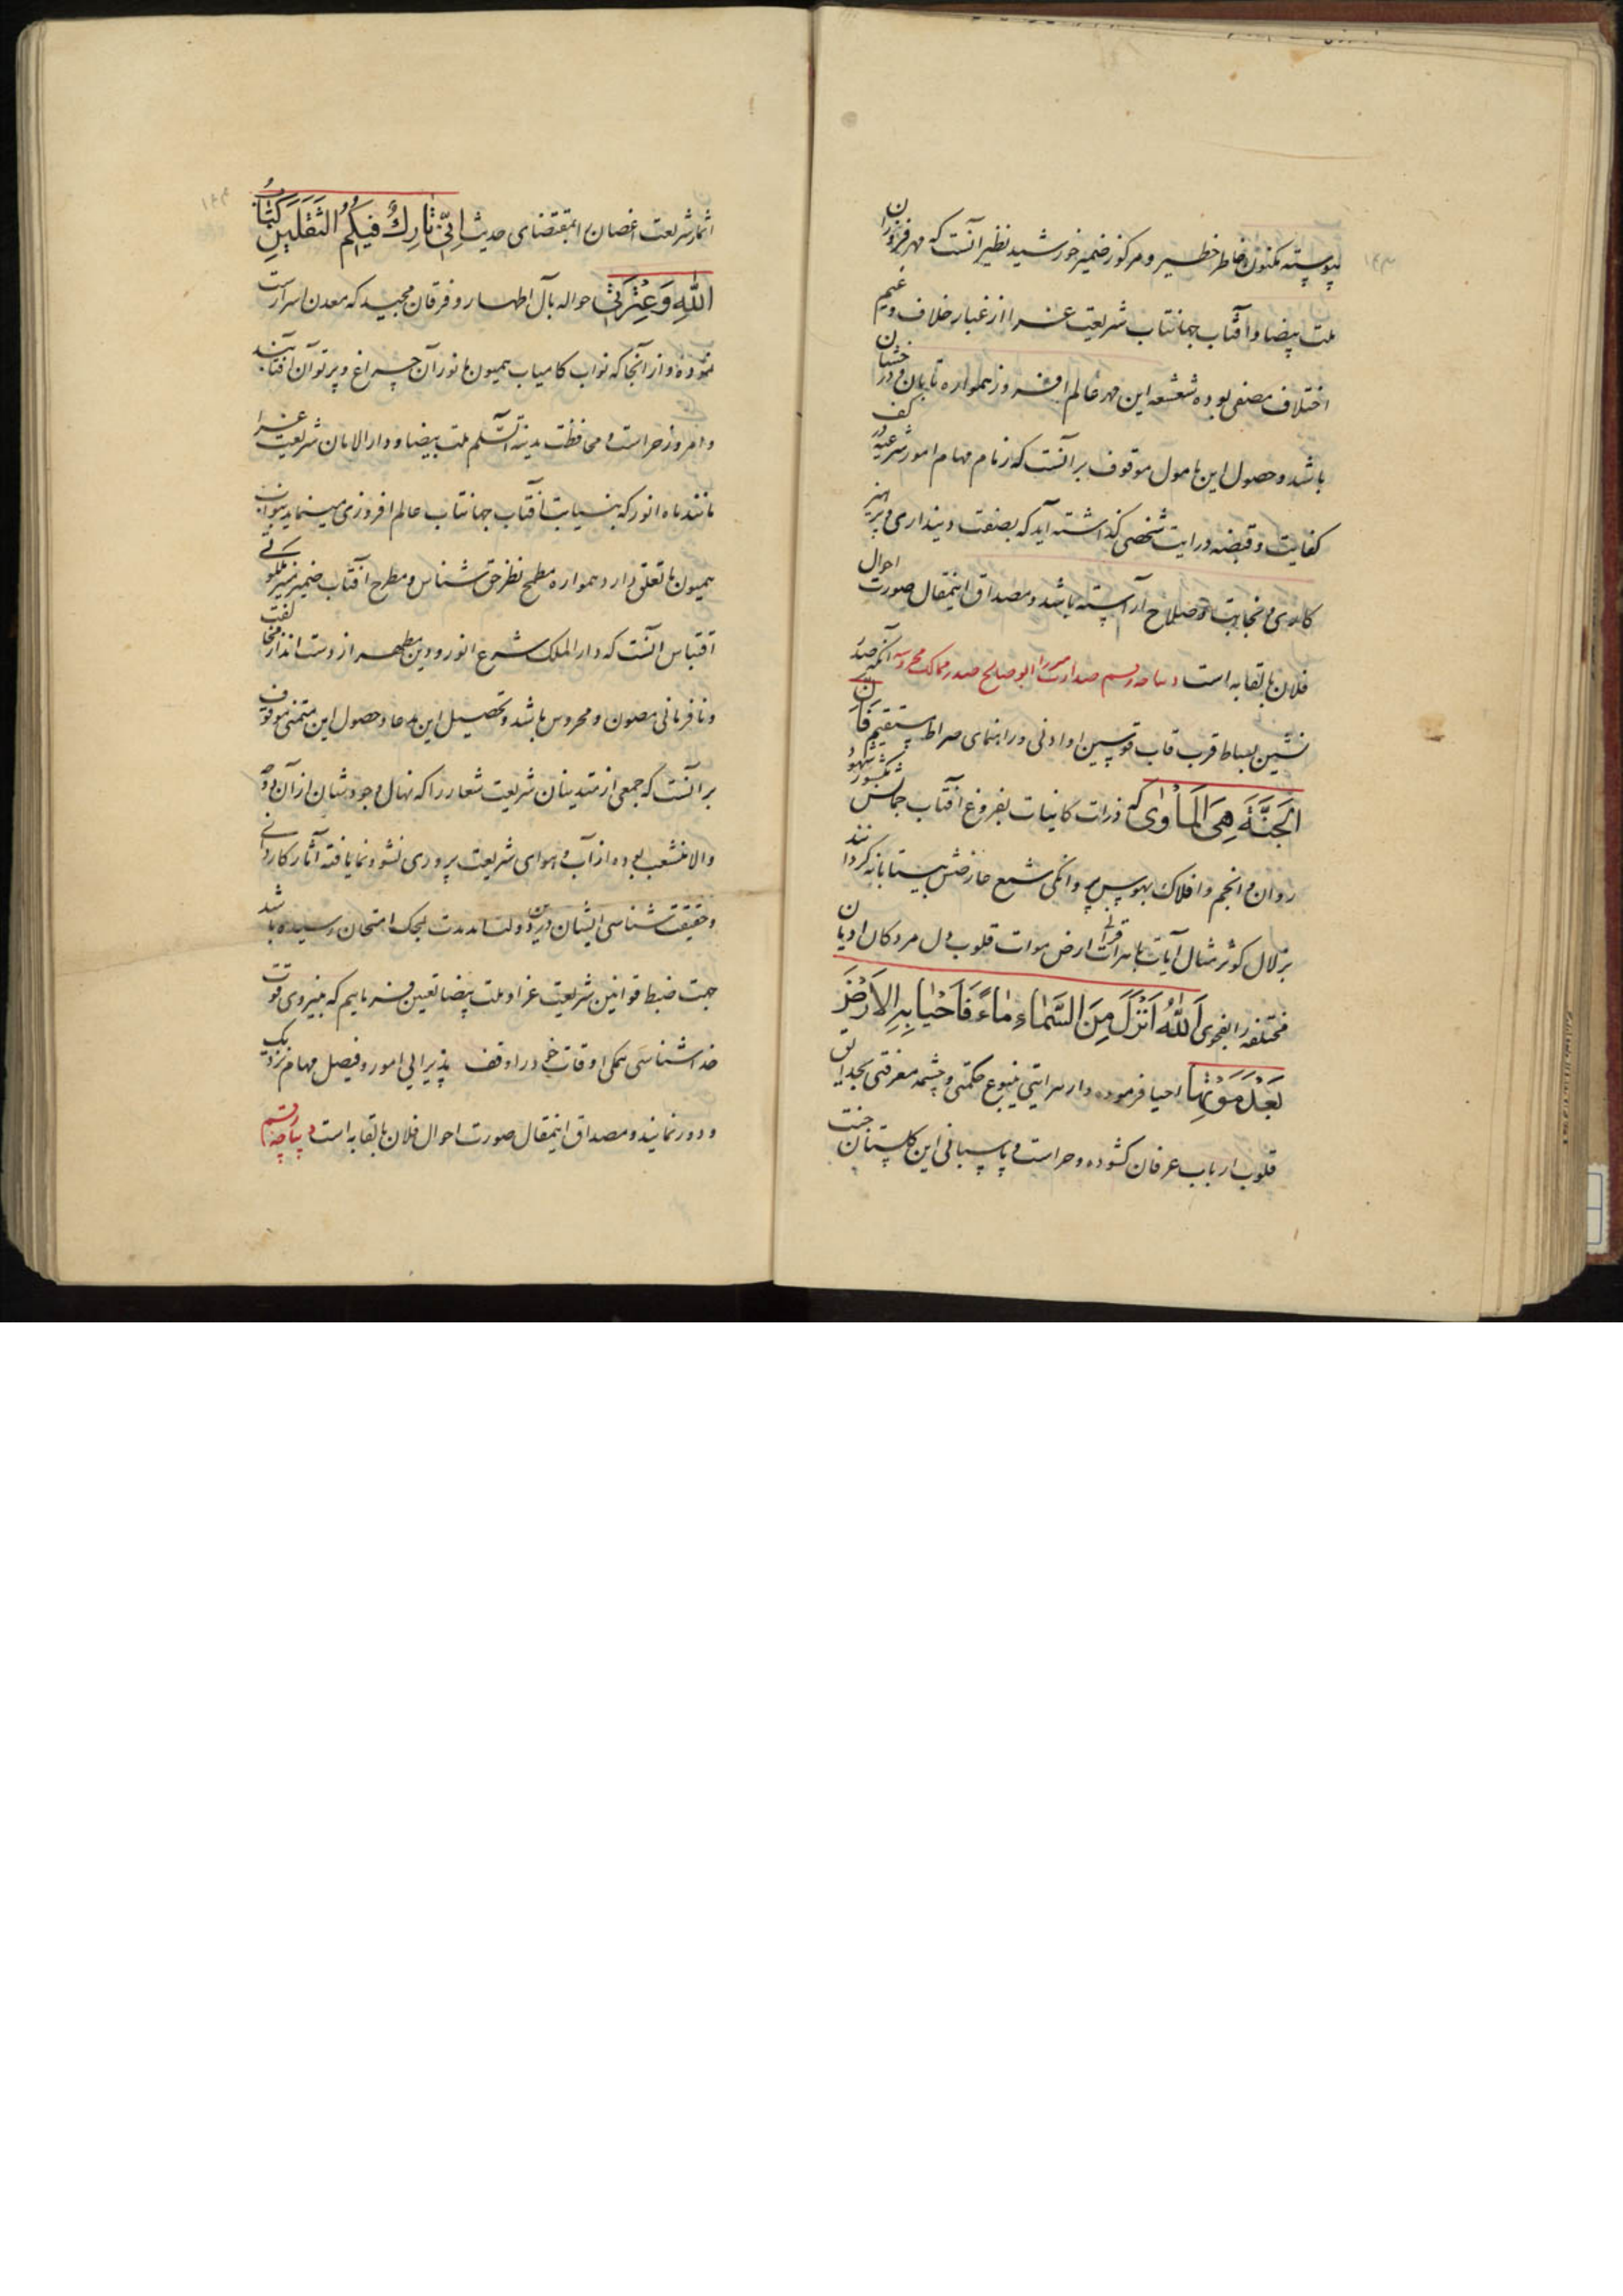 پیوسته مکنون خاطر خطیر و مرکوز ضمیر خورشید نظیر آنست که مهر فروزان
ملت بیضا و آفتاب جهانتاب شریعت غرا از غبار خلاف و غیم
اختلاف مصفی بوده شعشعه این مهر عالم افروز همواره تابان و درخشان
باشد و حصول این مامول موقوف بر آنست که زمام مهام امور شرعیه در کف
کفایت و قبضه درایت شخصی گذاشته آید که بصفت دینداری و پرهیز
کاری و نجابت و صلاح آراسته باشد و مصداق اینمقال صورت احوال
فلان بالقابه است دیباچه رقم صدارت میرزا ابوصالح صدر ممالک محروسه آنکه صدر
نشین بساط قرب قاب قوسین او ادنی و راهنمای صراط مستقیم فَاِنَّ
الجَنَّةَ هِیَ المَأوٰی که ذرات کاینات بفروغ آفتاب جمالش بکشور شهود
روان و انجم و افلاک بهوس پروانگی شمع عارضش بیتابانه گردانند
بزلال کوثر مثال آیات باهرات قرآنی ارض موات قلوب دل مردکان ادیان
مختلفه را بفحوی اَللهُ اَنْزَلَ مِنَ السَّمَاءِ مَاءً فَاَحْیَا بِهِ الاَرْضَ
بَعْدَ مَوْتِهَا احیا فرموده و از هر آیتی ینبوع حکمتی و چشمه معرفتی بحدایق
قلوب ارباب عرفان کشوده و حراست و پاسبانی این گلستان جنت
اثمار شریعت اغصان را بمقتضای حدیث اِنّی تَارِكٌ فیکُمُ الثَقَلَینِ کِتَابُ
اللّٰهِ وَعِتْرَتی حواله بآل اطهار و فرقان مجید که معدن اسرارست
نموده و از آنجا که نواب کامیاب همیون ما نور آن چراغ و پرتو آن آفتابند
و امروز حراست و محافظت مدینة السلم ملت بیضا و دارالامان شریعت غرا
مانند ماه انور که بنیابت آفتاب جهانتاب عالم افروزی مینماید بنواب
همیون ما تعلق دارد همواره مطمح نظر حق شناس و مطرح آفتاب ضمیر منیر ملکوتی
اقتباس آنست که دارالملک شرع انور و دین مطهر از دست انداز مخالفت
و نافرمانی مصون و محروس باشد و تحصیل این مدعا و حصول این متمنی موقوف
بر آنست که جمعی از متدینان شریعت شعار را که نهال وجودشان از آن دوحه
والا منشعب بوده از آب و هوای شریعت پروری نشو و نما یافته آثار کاردانی
و حقیقت شناسی ایشان درین دولت ابدمدت بمحک امتحان رسیده باشد
جهت ضبط قوانین شریعت غرا و ملت بیضا تعیین فرماییم که بنیروی قوت
خداشناسی همکی اوقات خود را وقف پذیرایی امور و فیصل مهام نزدیک
و دور نمایند و مصداق اینمقال صورت احوال فلان بالقابه است دیباچه رقم